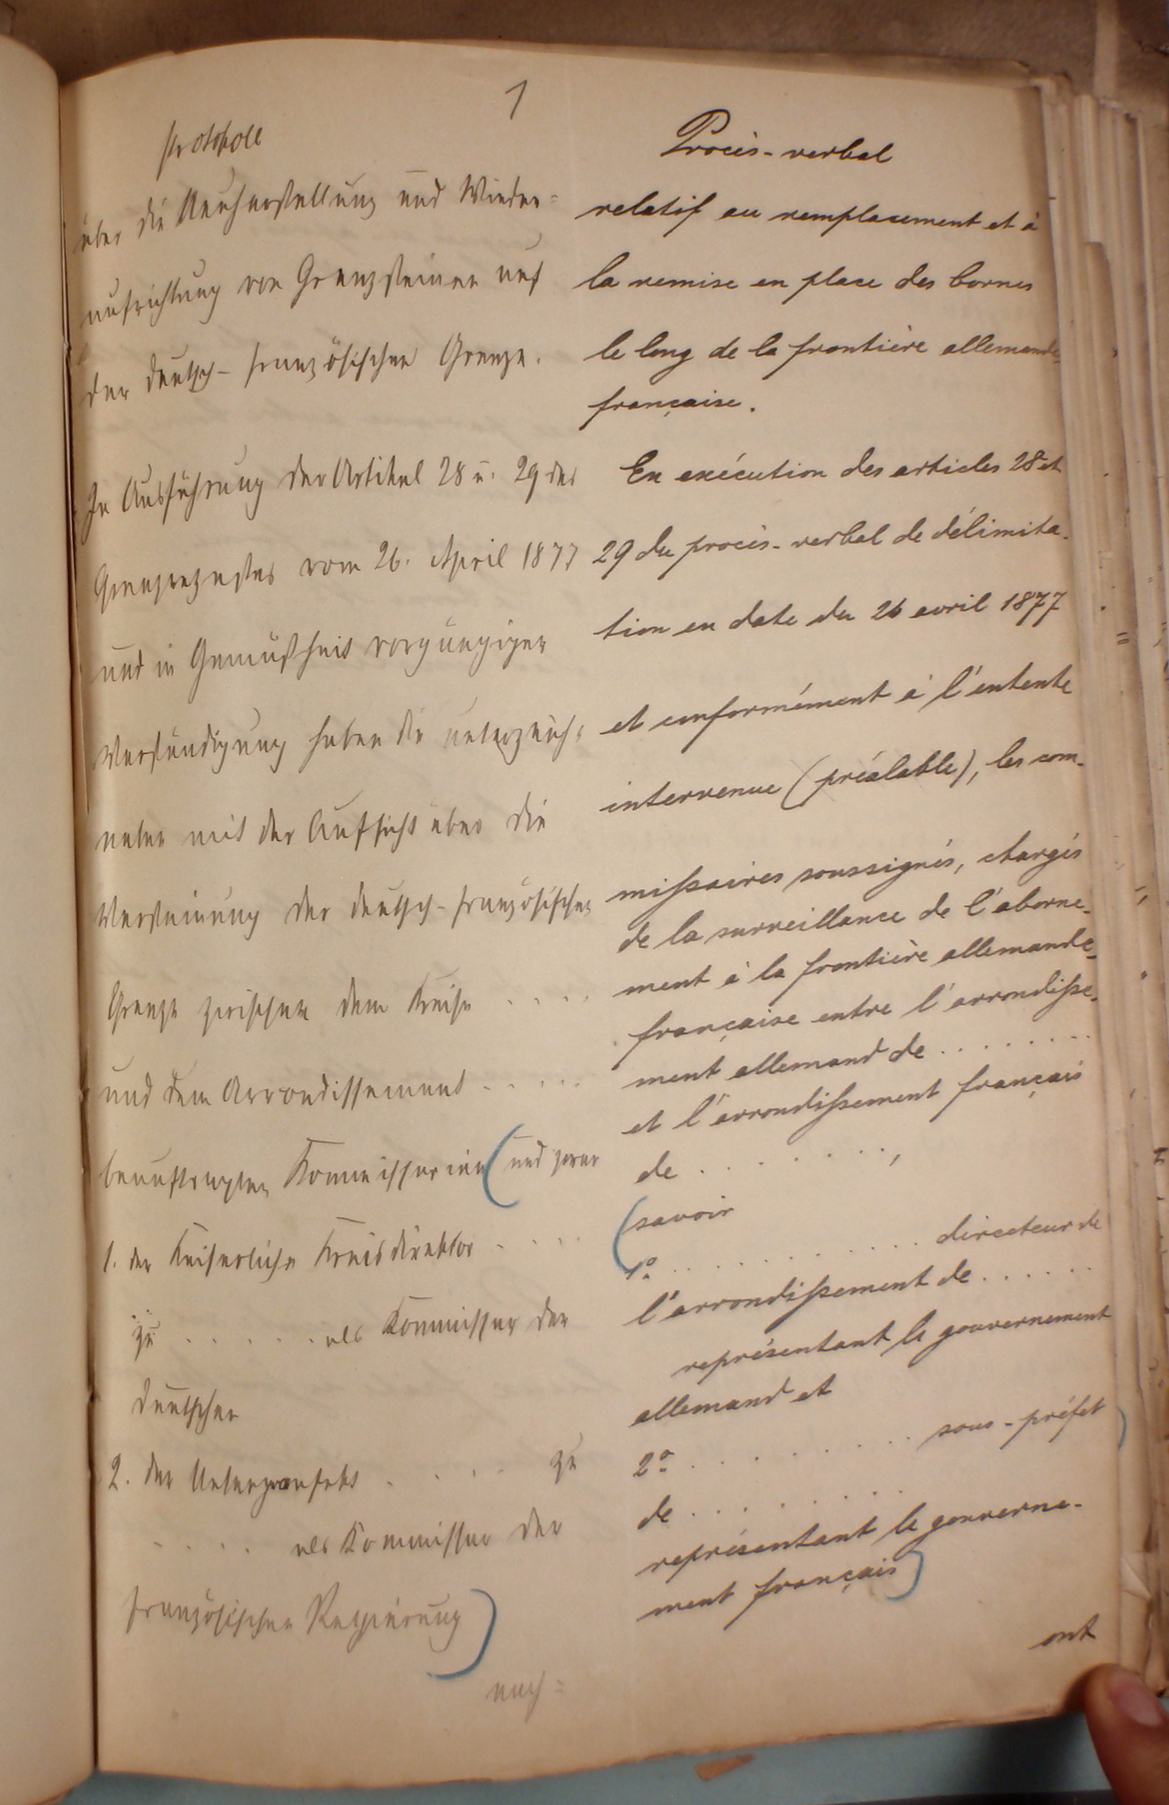 1
Protokoll
über die Neuherstellung und Wieder=
aufrichtung von Grenzsteinen auf
der deutsch-französischen Grenze.
In Ausführung der Artikel 28 u. 29 des
Grenzrezesses vom 26. April 1877
und in Gemäßheit vorgängiger
Verständigung haben die unterzeich=
neten mit der Aufsicht über die
Versteinung der deutsch-französischen
Grenze zwischen dem Kreise . . . .
und dem Arrondissement . . . . .
beauftragten Kommissarien (und zwar
1. der Kaiserliche Kreisdirektor . . . .
zu . . . . . . als Kommissar der
deutschen
2. der Unterpräfekt . . . . zu
. . . . . als Kommissar der
französischen Regierung)
nach=
Procès-verbal
relatif au remplacement et à
la remise en place des bornes
le long de la frontière allemande-
française.
En exécution des articles 28 et
29 du procès-verbal de délimita-
tion en date du 26 avril 1877
et conformément à l'entente
intervenue (préalable), les com-
missaires soussignés, chargés
de la surveillance de l'aborne-
ment à la frontière allemande-
française entre l'arrondisse-
ment allemand de . . . . . . . .
et l'arrondissement français
de . . . . . . . . ,
(savoir
1º . . . . . . . . . . directeur de
l'arrondissement de . . . . . .
représentant le gouvernement
allemand et
2º . . . . . . . . . sous-préfet
de . . . . . . . . .
représentant le gouverne-
ment français)
ont